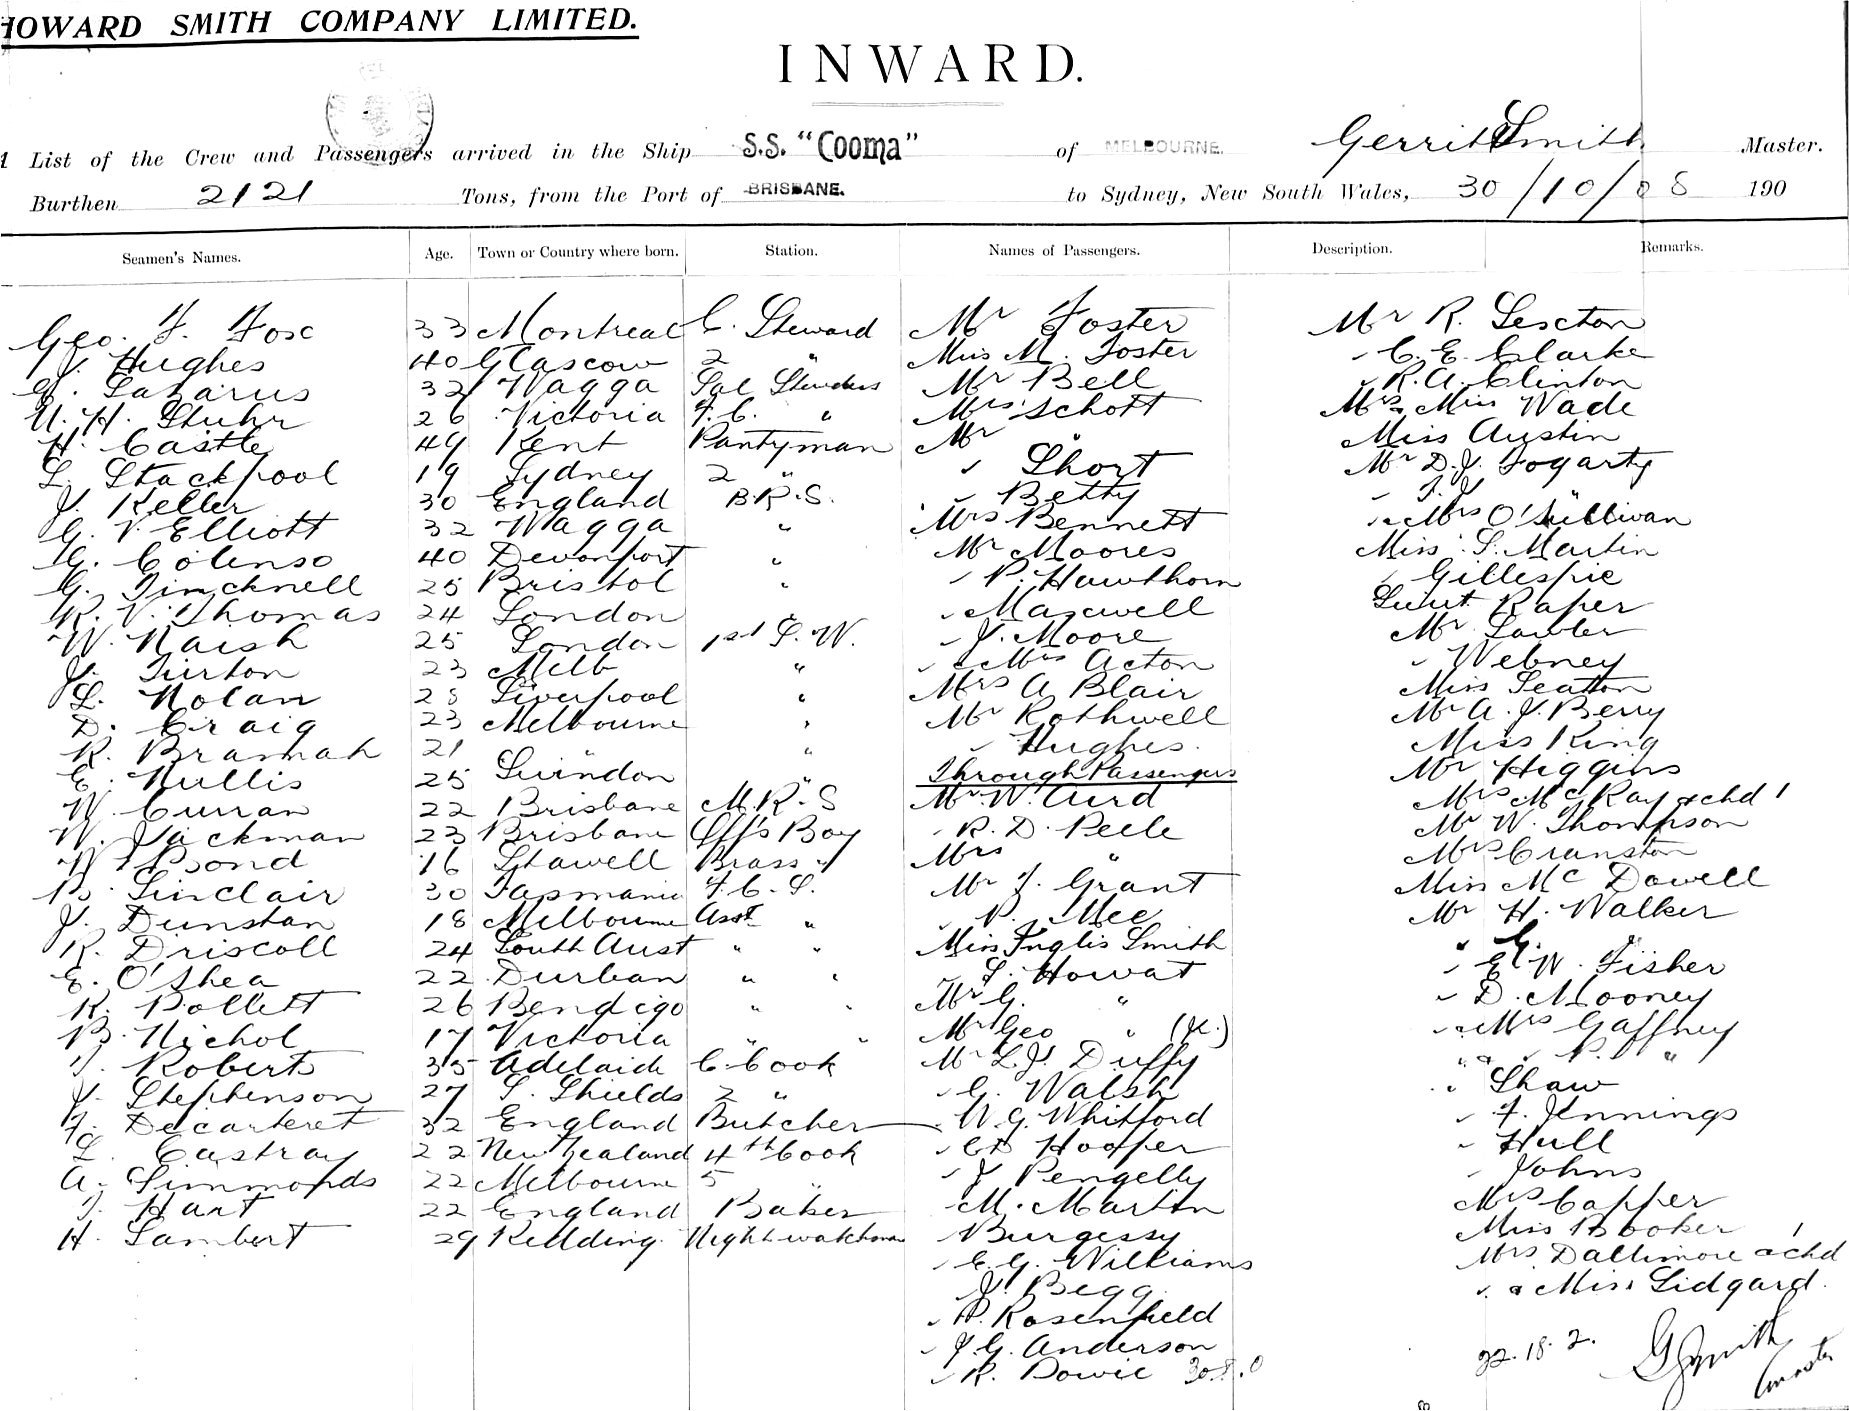 HOWARD SMITH COMPANY LIMITED.
INWARD.
List of the Crew and Passengers arrived in the Ship S.S. "Cooma" of MELBOURNE. Gerritt Smith Master.
Burthen 2121 Tons, from the Port of BRISBANE. to Sydney, New South Wales, 30/10/08 190
Seamen's Names. Age. Town or Country where born. Station. Names of Passengers. Description. Remarks.
Geo. F. Fox 33 Montreal C. Steward Mr Foster Mr R. Sexton
J. Hughes 40 Glascow 2 " Miss M. Foster " C. E. Clarke
Lazarus 32 Wagga Sal Stewards Mr Bell " R. A. Clinton
U. H. Stuhr 26 Victoria F. C. " Mrs Schott Mrs & Miss Wade
H. Castle 49 Kent Pantryman Mr " Miss Austin
L. Stackpool 19 Sydney 2 " " Short Mr D. J. Fogarty
J. Keller 30 England B.R.S. " Betty " T. J. "
G. V. Elliott 32 Wagga " Mrs Bennett " & Mrs O'Sullivan
G. Colenso 40 Devonport " Mr Moores Miss S. Martin
G. Timcknell 25 Bristol " " P. Hawthorn " Gillespie
R. V. Thomas 24 London " Maxwell Lieut Raper
W. Naish 25 London 1st S. W. " J. Moore Mr Lawler
J. Turton 23 Melb " " & Mrs Acton " Webney
L. Nolan 28 Liverpool " Mrs A Blair Miss Seatton
D. Craig 23 Melbourne " Mr Rothwell Mr A. J. Berry
R. Bramah 21 " " " Hughes. Miss King
E. Nullis 25 Swindon " Through Passengers Mr Higgins
W. Curran 22 Brisbane M.R.S Mr W. Aird Mrs McKay & chd 1
W. Jackman 23 Brisbane Offs Boy " R. D. Peele Mr W. Thompson
W Bond 16 Stawell Brass " Mrs " Mrs Cranston
B. Sinclair 30 Tasmania F. C. S. Mr J. Grant Miss McDowell
J. Dunstan 18 Melbourne Asst " " P. Mee Mr H. Walker
R. Driscoll 24 South Aust " " Miss Inglis Smith " G. "
E. O'Shea 22 Durban " " " L. Howat " E. W. Fisher
R. Pollett 26 Bendigo " " Mr G. " " D. Mooney
B. Nichol 17 Victoria " " Mr Geo " (Jr.) " & Mrs Gaffney
T. Roberts 35 Adelaide C. Cook Mr L. J. Duffy " & " P. "
J. Stephenson 27 S. Shields 2 " " G. Walsh " Shaw
F. Decarteret 32 England Butcher " W. G. Whitford " F. Jennings
L. Castray 22 New Zealand 4th Cook " Hooper " Hull
A. Simmonds 22 Melbourne 5 " " J Pengelly " Johns
T. Hart 22 England Baker " M. Martin Mrs Capper
H. Lambert 29 Kellding Nightwatchman " Burgess Miss Booker 1
" E. G. Williams Mrs Daltimore & chd
" J. Begg " & Miss Lidgard.
" P. Rosenfield
" J. G. Anderson 22.18.2. G Smith
" R. Dowie 30.8.0 Master